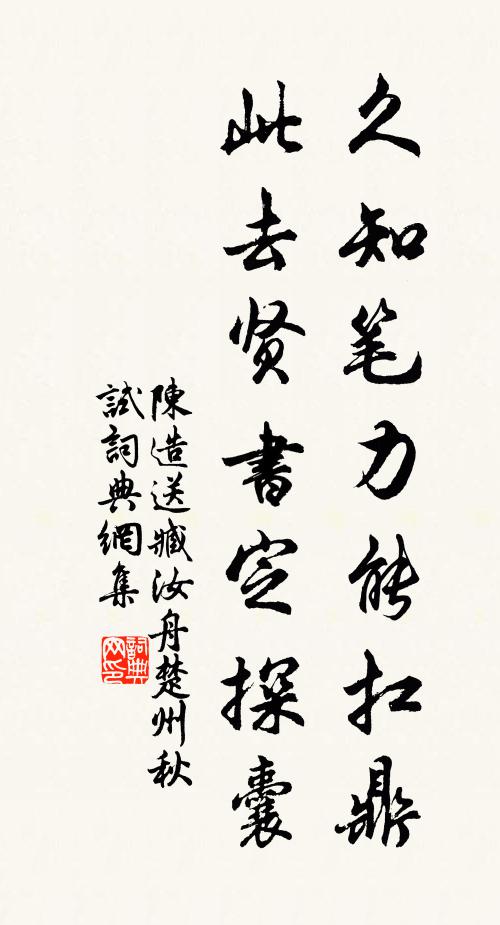 久知笔力能扛鼎
此去贤書定探囊
陳造送臧汝舟楚州秋
試詞典網集
詞典网印